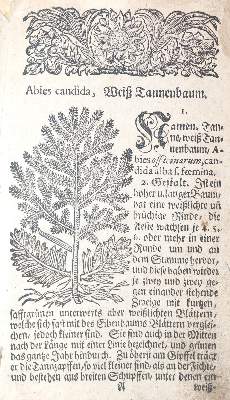 Abies candida, Weiß Tannenbaum.
1.
Namen. Tan-
ne, weiß Tan-
nenbaum, A-
bies officinarum, can-
dida alba s. fœmina.
2. Gestalt. Ist ein
hoher u. langer Baum,
dat eine weißlichte un
brüchige Rinde, die
Aeste wachsen je 4. 5.
6. oder mehr in einer
Runde um und an
dem Stamme hervor,
und diese haben wieder
je zwey und zwey ge-
gen einander stehende
Zweige mit kurzen,
safftgrünen unterwerts aber weißlichten Blättern,
welche sich fast mit des Eibenbaums Blättern verglei-
chen, jedoch kleiner sind. Sie sind auch in der Mitten
nach der Länge mit einer Linie bezeichnet, und grünen
das gantze Jahr hindurch. Zu öberst am Gipffel träget
er die Tannzapffen, so viel kleiner sind, als an der Fichte,
und bestehen aus breiten Schupffen, unter denen ein
A
weiß-